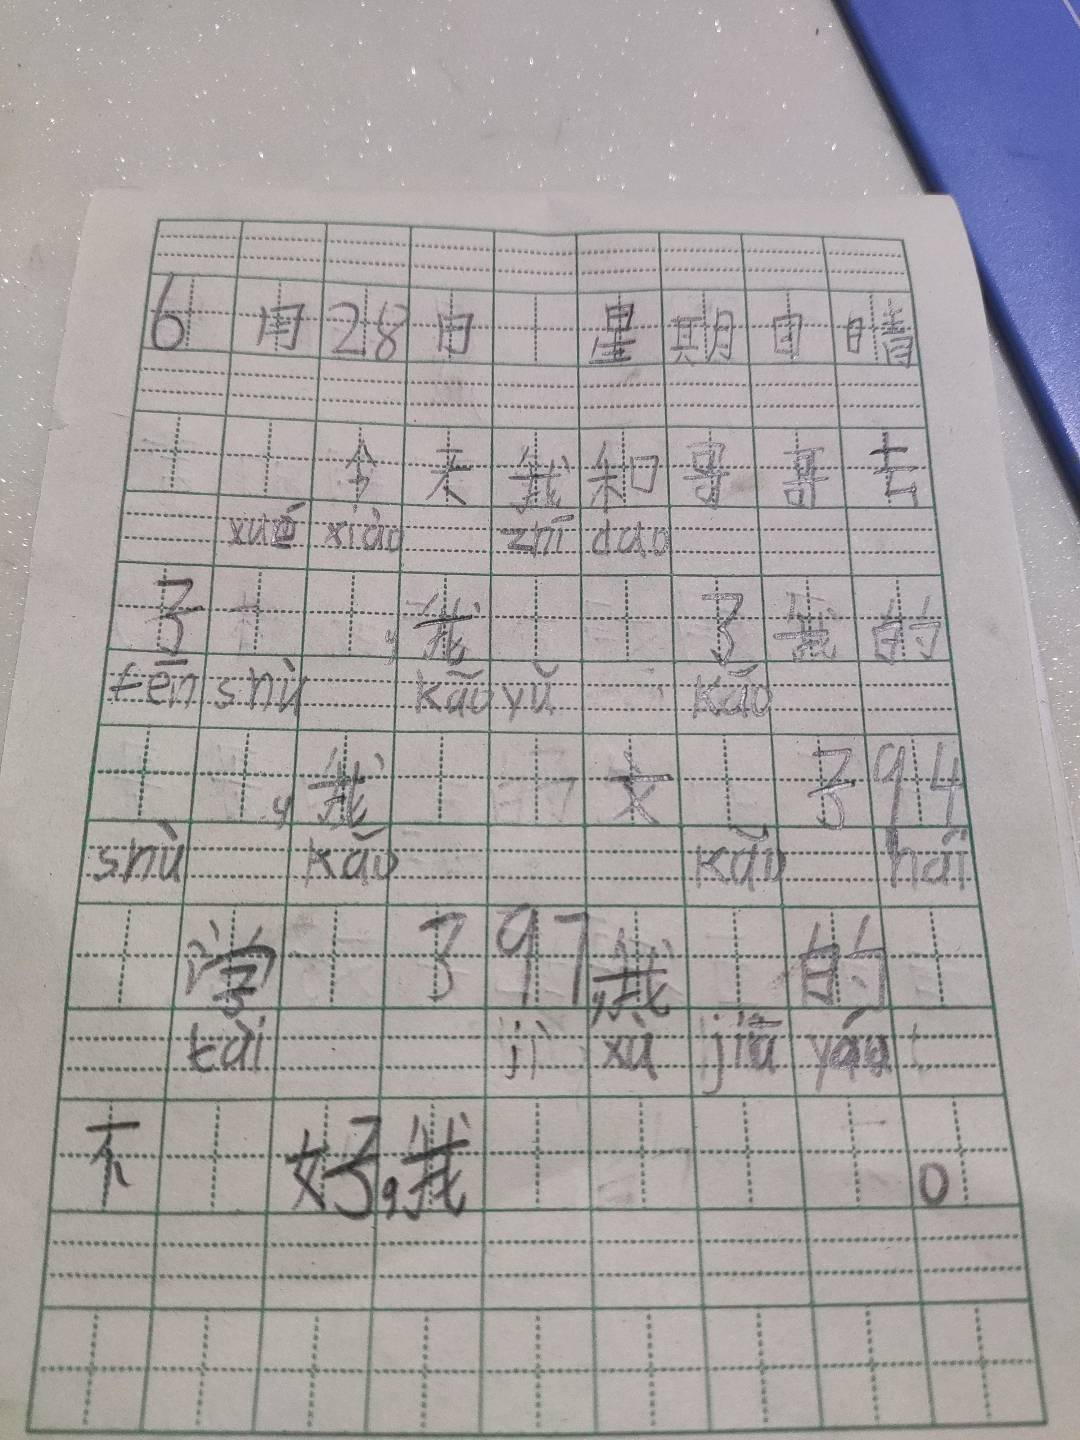 6月28日 星期日晴
今天我和哥哥去
xué xiào zhī dao
了 ，我 了我的
fēn shù kǎo yǔ kǎo
，我 文 了94
shù kǎo kǎo hái
学 了97，我 的
tài jì xù jiā yóu
不 好了，我 。